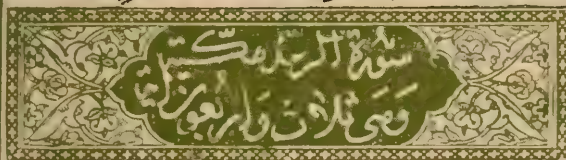 سُورَةُ الرَّعْدِ مَكِّيَّةٌ
وَهِيَ ثَلَاثٌ وَأَرْبَعُونَ آيَةً